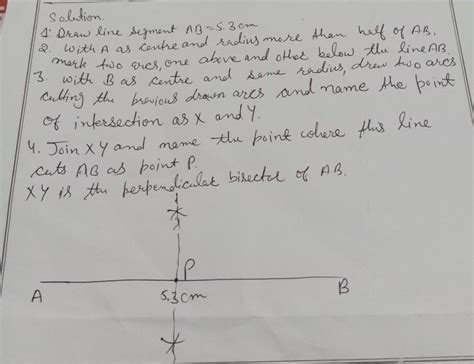 Solution.
1. Draw line segment AB = 5.3 cm
2. With A as centre and radius more than half of AB,
mark two arcs, one above and other below the line AB.
3. with B as centre and same radius, draw two arcs
cutting the previous drawn arcs and name the point
of intersection as X and Y.
4. Join XY and name the point where this line
cuts AB as point P.
XY is the perpendicular bisector of AB.
P
A 5.3 cm B